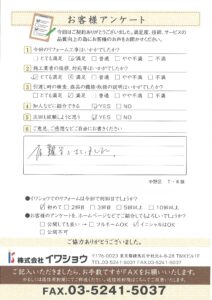 お客様アンケート
今回はご契約ありがとうございました。満足度、技術、サービスの
品質向上の為にお客様のお声をお聞かせください。
1 今回のリフォーム工事はいかがでしたか？
とても満足 満足 普通 やや不満 不満
2 施工業者の技術、対応等はいかがでしたか？
とても満足 満足 普通 やや不満 不満
3 引渡し時の検査、商品の機能・取扱の説明はいかがでしたか？
とても満足 満足 普通 やや不満 不満
4 知人などに紹介できる YES NO
5 次回も依頼しようと思う YES NO
6 ご意見、ご感想などご自由にお書きください
中野区 T・M様
●イワショウでのリフォームは今回で何回目ですか？
初めて 2回目 3回目 5回以上 10回以上
●お客様のアンケートを、ホームページなどでご紹介してもよろしいでしょうか？
公開しても良い フルネームOK イニシャルはOK
公開不可
ご協力ありがとうございました。
株式会社イワショウ
ご記入いただきましたら、お手数ですがFAXをお願いいたします。
FAX.03-5241-5037